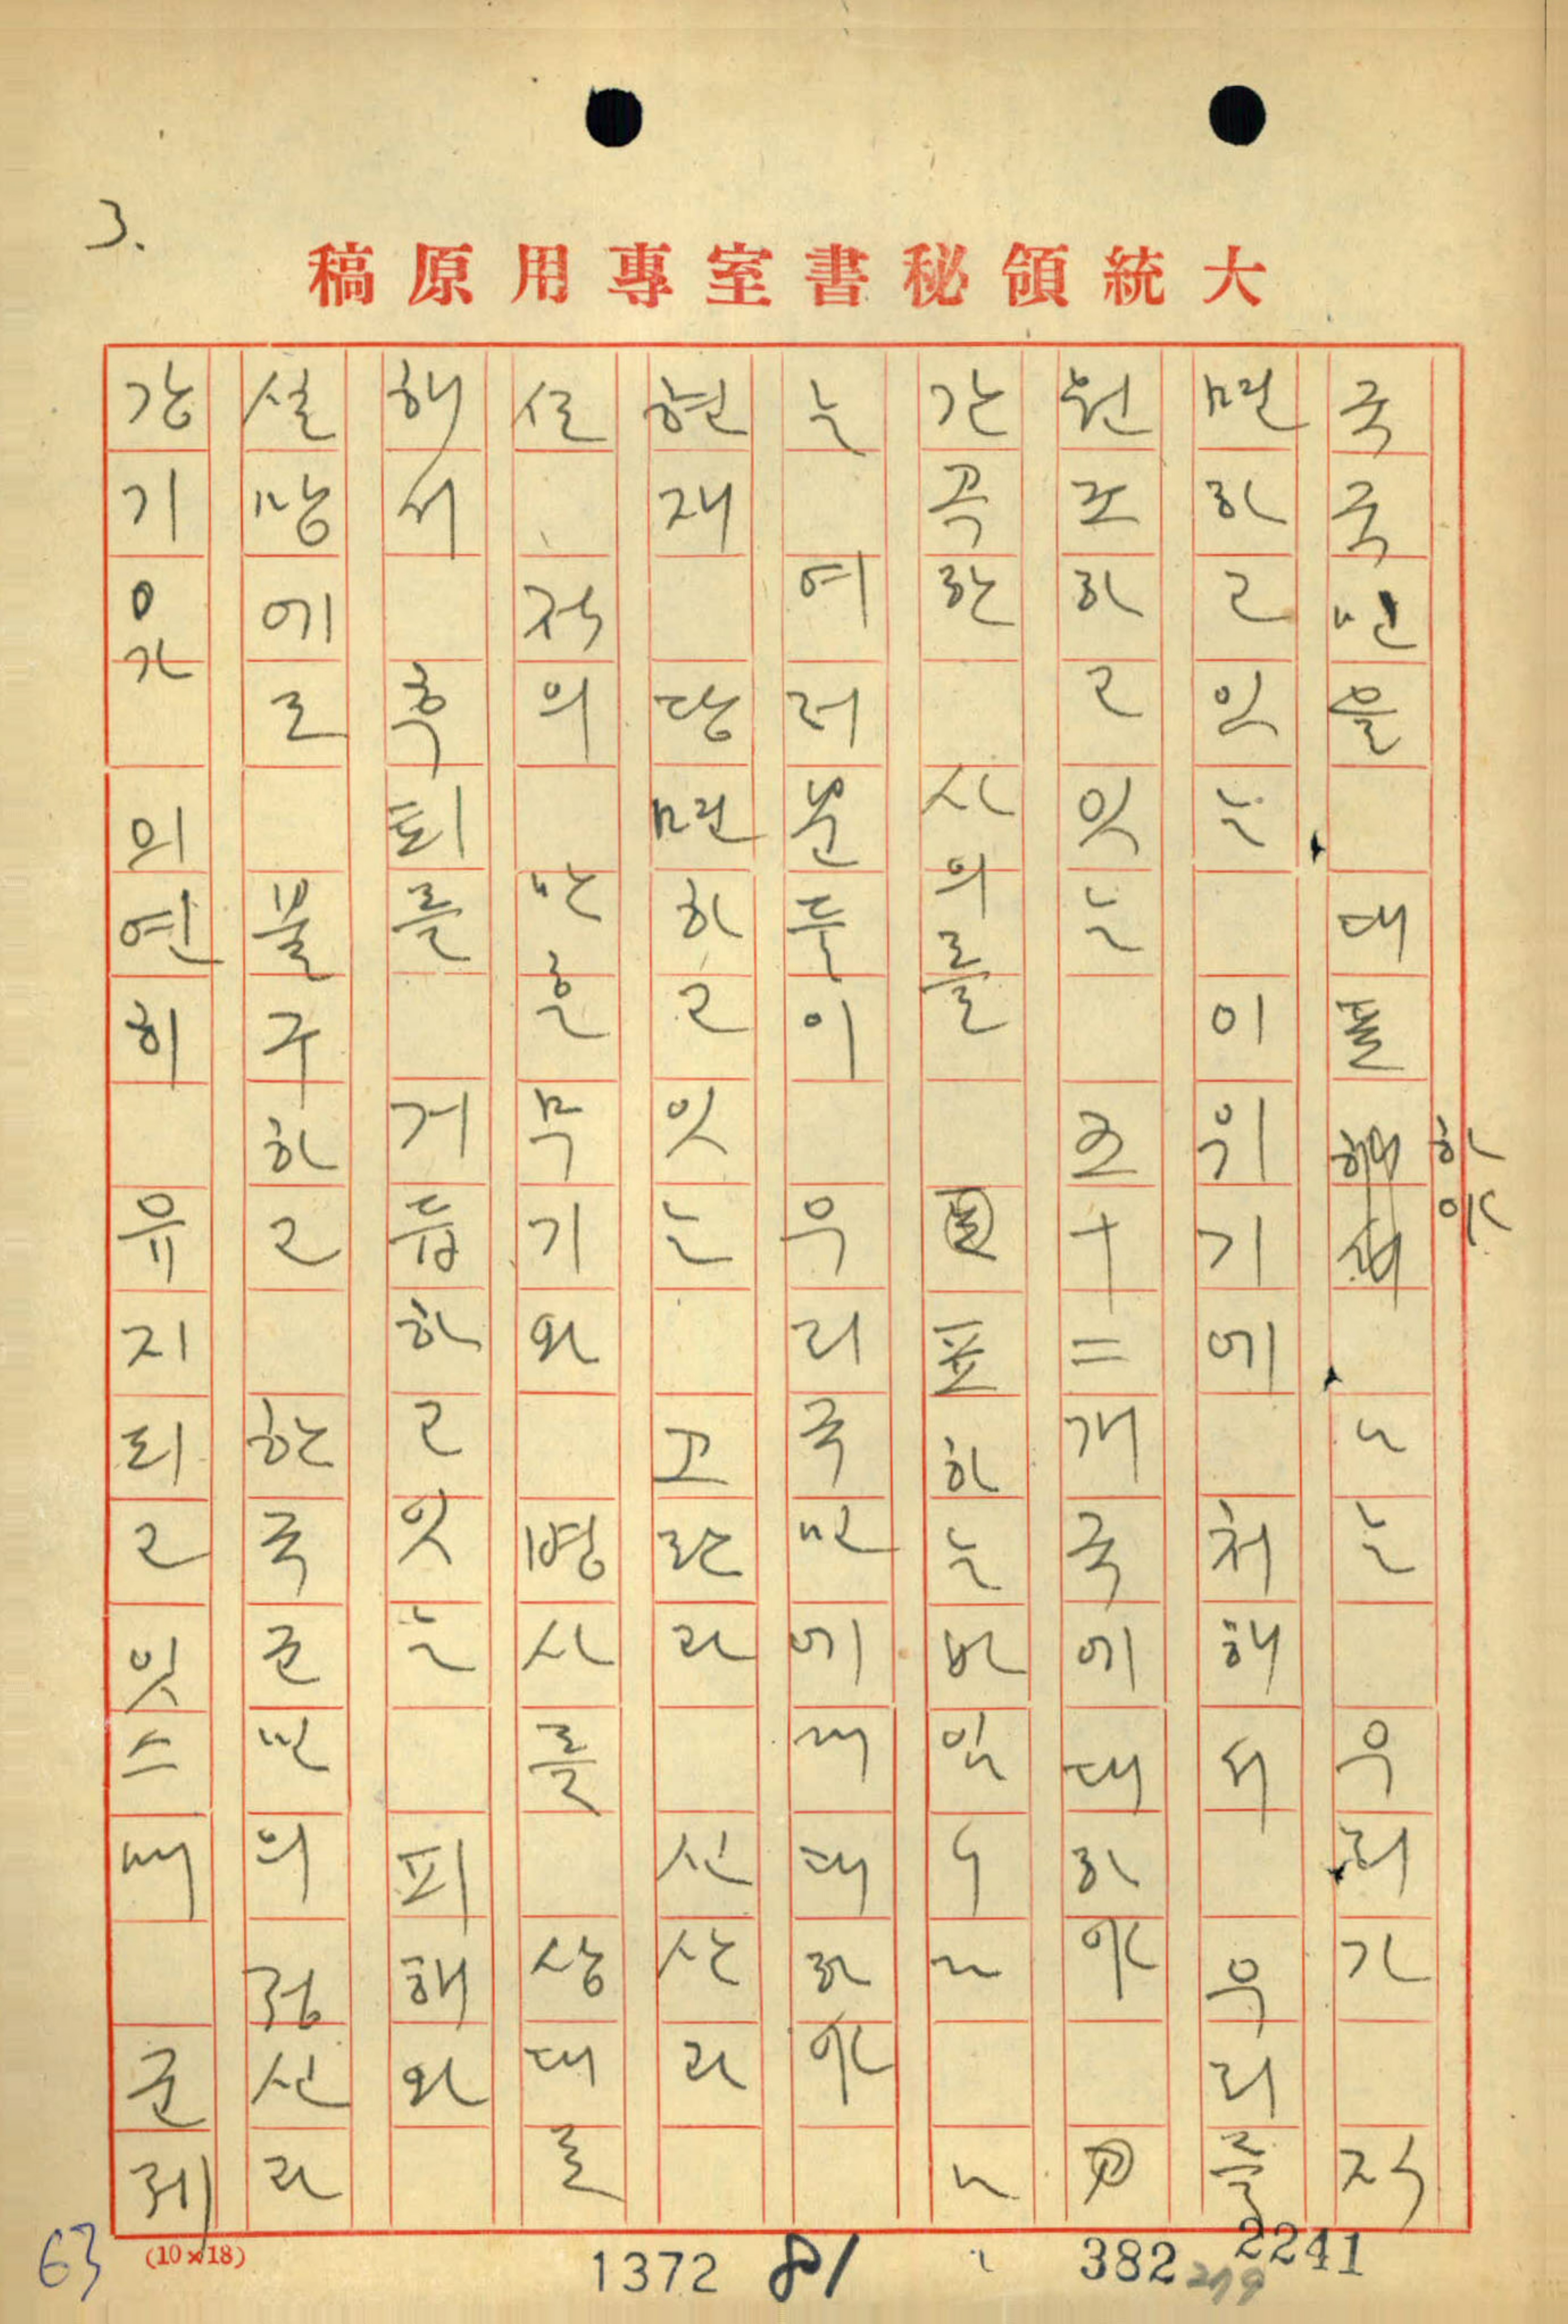 3.
大統領秘書室專用原稿
국국민을 대표 하야 나는 우리가 직
면하고 잇는 이 위기에 처해서 우리를
원조하고 잇는 五十二개국에 대하야
간곡한 사의를 表하는바임니다 나
는 여러분들이 우리국민에게 대하야
현재 당면하고 잇는 고란과 신산과
적의 만흔무기와 병사를 상대로
해서 훅퇴를 거듭하고잇는 피해와
실망에도 불구하고 한국군민의 정신과
강기 가 의연히 유지되고 잇스매 군제
63
(10×18)
1372
81
382
2241
279